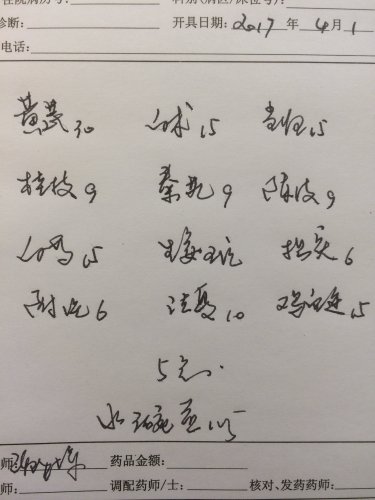 住院病历号: 科别(病区/床位号):
诊断: 开具日期: 2017 年 4月 1
电话:
黄芪30 白术15 当归15
桂枝9 秦艽9 陈皮9
白芍15 枳实6
6 法夏10 鸡血藤15
5剂
水
师: 药品金额:
师: 调配药师/士: 核对、发药药师: